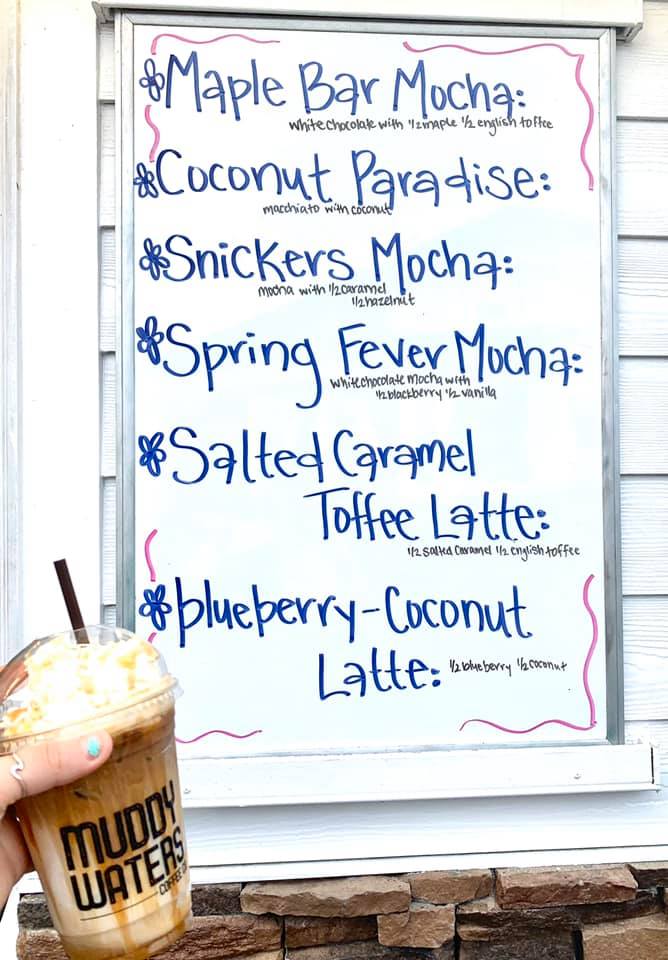 Maple Bar Mocha:
white chocolate with 1/2 maple 1/2 english toffee
Coconut Paradise:
macchiato with coconut
Snickers Mocha:
mocha with 1/2 caramel
1/2 hazelnut
Spring Fever Mocha:
white chocolate mocha with
1/2 blackberry 1/2 vanilla
Salted Caramel
Toffee Latte:
1/2 salted caramel 1/2 english toffee
blueberry-Coconut
Latte: 1/2 blueberry 1/2 coconut
MUDDY
WATERS
COFFEE